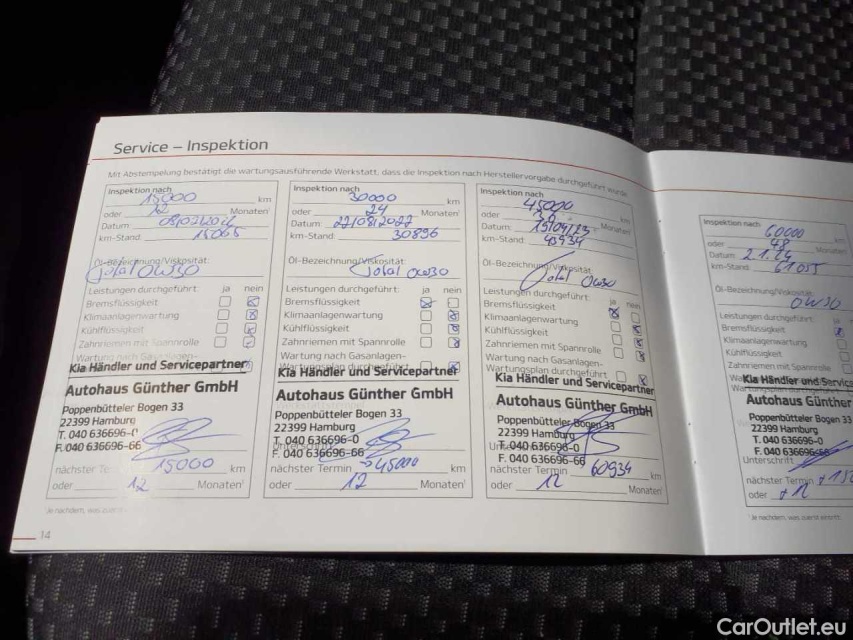 Service – Inspektion
Mit Abstempelung bestätigt die wartungsausführende Werkstatt, dass die Inspektion nach Herstellervorgabe durchgeführt wurde.
Inspektion nach 15000 km
oder 12 Monaten¹
Datum
km-Stand: 15065
Öl-Bezeichnung/Viskosität:
Total 0W30
Leistungen durchgeführt: ja nein
Bremsflüssigkeit
Klimaanlagenwartung
Kühlflüssigkeit
Zahnriemen mit Spannrolle
Wartung nach Gasanlagen-
Kia Händler und Servicepartner
Autohaus Günther GmbH
Poppenbütteler Bogen 33
22399 Hamburg
T. 040 636696-0
F. 040 636696-66
15000 km
oder 12 Monaten¹
¹Je nachdem, was zuerst
14
Inspektion nach 30000 km
oder 24 Monaten¹
Datum: 22/08/2022
km-Stand: 30896
Öl-Bezeichnung/Viskosität:
Total 0W30
Leistungen durchgeführt: ja nein
Bremsflüssigkeit
Klimaanlagenwartung
Kühlflüssigkeit
Zahnriemen mit Spannrolle
Wartung nach Gasanlagen-
Wartungsplan durchgeführt
Kia Händler und Servicepartner
Autohaus Günther GmbH
Poppenbütteler Bogen 33
22399 Hamburg
T. 040 636696-0
Unterschrift
F. 040 636696-66
nächster Termin 45000 km
oder 12 Monaten¹
Inspektion nach 45000 km
oder 36 Monaten¹
Datum: 19/04/23
km-Stand: 45934
Öl-Bezeichnung/Viskosität:
Total 0W30
Leistungen durchgeführt: ja nein
Bremsflüssigkeit
Klimaanlagenwartung
Kühlflüssigkeit
Zahnriemen mit Spannrolle
Wartung nach Gasanlagen-
Wartungsplan durchgeführt
Kia Händler und Servicepartner
Autohaus Günther GmbH
Poppenbütteler Bogen 33
22399 Hamburg
T. 040 636696-0
F. 040 636696-66
nächster Termin 60934 km
oder 12 Monaten¹
Inspektion nach 60000
oder 48
Datum 2.1.24
km-Stand: 61055
Öl-Bezeichnung/Viskosität:
0W30
Leistungen durchgeführt: ja
Bremsflüssigkeit
Klimaanlagenwartung
Kühlflüssigkeit
Zahnriemen mit Spannrolle
Kia Händler und Service
Autohaus Günther
Poppenbütteler Bogen 33
22399 Hamburg
T. 040 636696-0
F. 040 636696-66
Unterschrift
nächster Termin
oder +12
¹Je nachdem, was zuerst eintritt.
CarOutlet.eu